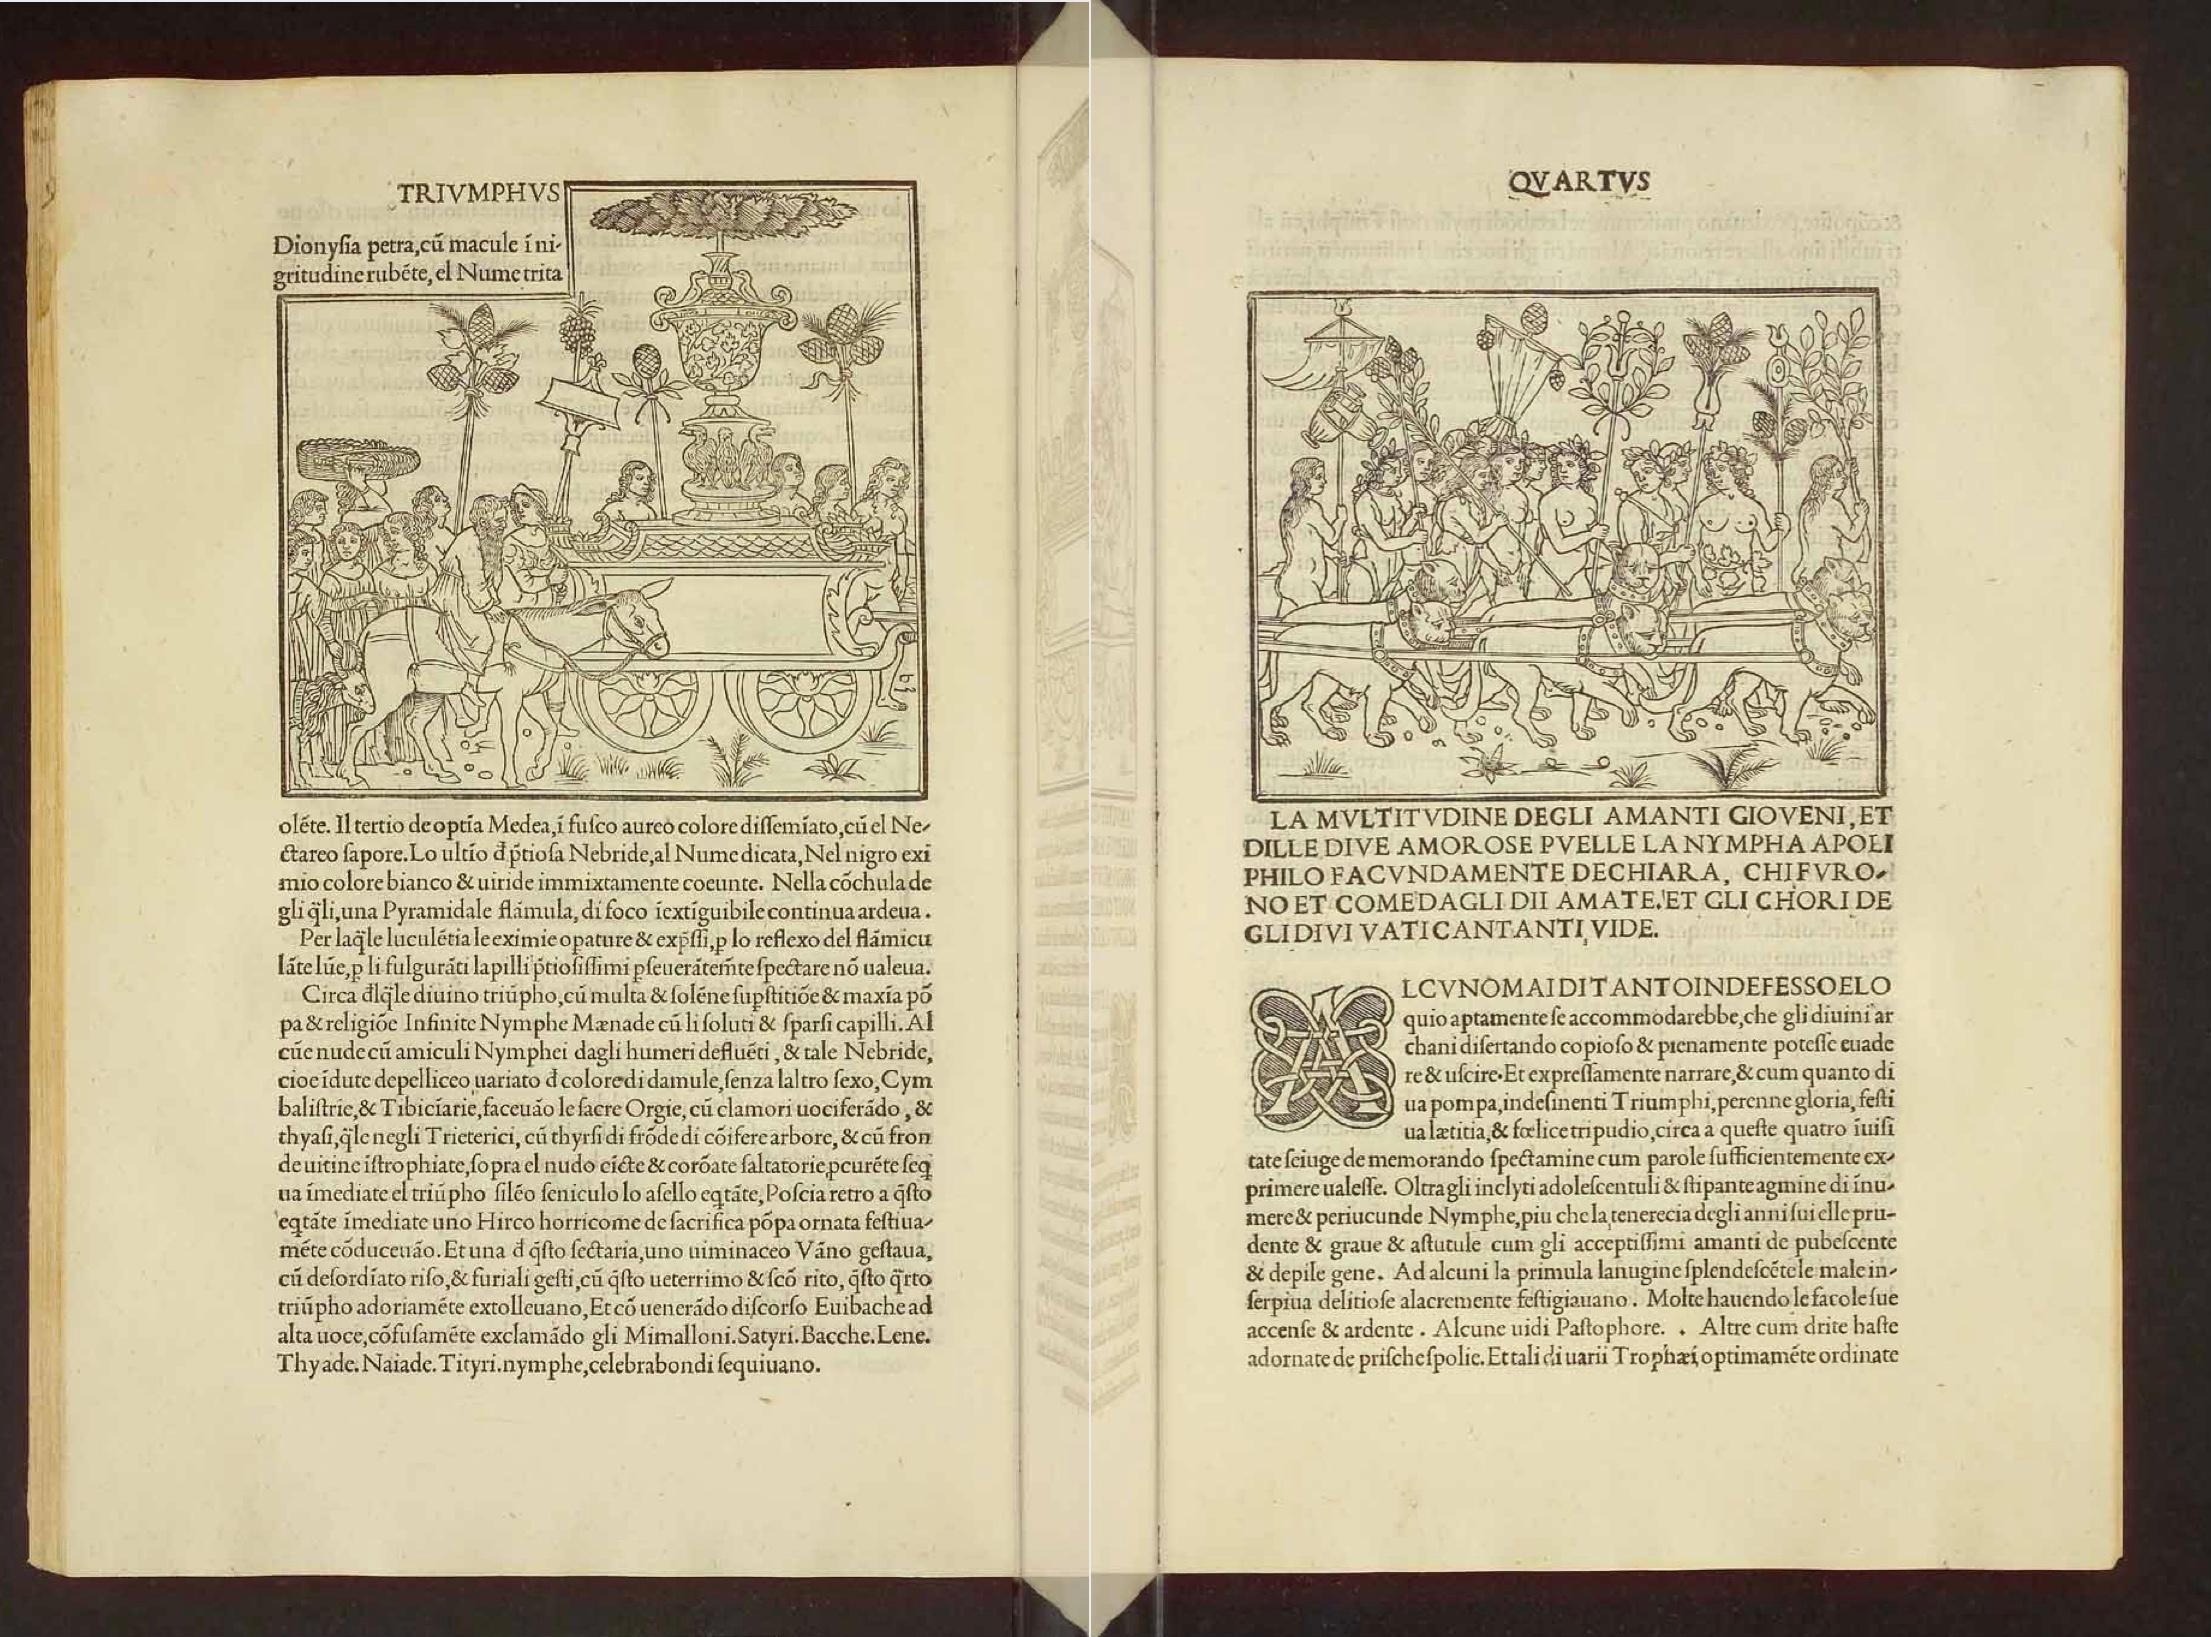 TRIVMPHVS
Dionyſia petra,cũ macule ĩ ni-
gritudine rubẽte, el Nume trita
olẽte. Il tertio de optĩa Medea,ĩ fuſco aureo colore diſſemĩato,cũ el Ne-
ctareo ſapore. Lo ultĩo đ p̃tioſa Nebride,al Nume dicata, Nel nigro exi
mio colore bianco & uiride immixtamente coeunte. Nella cõchula de
gli q̃li,una Pyramidale flãmula, di foco ĩextĩguibile continua ardeua.
Per laq̃le luculẽtia le eximie oꝑature & exp̃ſſi,ꝑ lo reflexo del flãmicu
lãte lũe,ꝑ li fulgurãti lapilli p̃tioſiſſimi ꝑſeuerãtem̃te ſpectare nõ ualeua.
Circa đlq̃le diuino triũpho,cũ multa & ſolẽne ſuꝑſtitiõe & maxĩa põ
pa & religiõe Infinite Nymphe Mænade cũ li ſoluti & ſparſi capilli. Al
cũe nude cũ amiculi Nymphei dagli humeri defluẽti, & tale Nebride,
cioe ĩdute de pelliceo uariato đ colore di damule,ſenza laltro ſexo, Cym
baliſtrie,& Tibicĩarie,faceuão le ſacre Orgie, cũ clamori uociferãdo, &
thyaſi,q̃le negli Trieterici, cũ thyrſi di frõde di cõifere arbore, & cũ fron
de uitine ĩſtrophiate,ſopra el nudo cĩcte & corõate ſaltatorie,ꝓcurẽte ſeq
ua ĩmediate el triũpho ſilẽo ſeniculo lo aſello eqtãte, Poſcia retro a q̃ſto
eqtãte ĩmediate uno Hirco horricome de ſacrifica põpa ornata feſtiua-
mẽte cõduceuão. Et una đ q̃ſto ſectaria,uno uiminaceo Vãno geſtaua,
cũ deſordĩato riſo,& furiali geſti,cũ q̃ſto ueterrimo & ſcõ rito, q̃ſto q̃rto
triũpho adoriamẽte extolleuano, Et cõ uenerãdo diſcorſo Euibache ad
alta uoce,cõfuſamẽte exclamãdo gli Mimalloni. Satyri. Bacche. Lene.
Thyade. Naiade. Tityri. nymphe,celebrabondi ſequiuano.
QVARTVS
LA MVLTITVDINE DEGLI AMANTI GIOVENI, ET
DILLE DIVE AMOROSE PVELLE LA NYMPHA APOLI
PHILO FACVNDAMENTE DECHIARA, CHI FVRO-
NO ET COME DAGLI DII AMATE. ET GLI CHORI DE
GLI DIVI VATI CANTANTI, VIDE.
ALCVNO MAI DI TANTO INDEFESSO ELO
quio aptamente ſe accommodarebbe,che gli diuini ar
chani diſertando copioſo & pienamente poteſſe euade
re & uſcire. Et expreſſamente narrare,& cum quanto di
ua pompa,indeſinenti Triumphi,perenne gloria, feſti
ua lætitia,& fœlice tripudio,circa a queſte quatro ĩuiſi
tate ſeiuge de memorando ſpectamine cum parole ſufficientemente ex-
primere ualeſſe. Oltra gli inclyti adoleſcentuli & ſtipante agmine di ĩnu-
mere & periucunde Nymphe,piu che la tenerecia degli anni ſui elle pru-
dente & graue & aſtutule cum gli acceptiſſimi amanti de pubeſcente
& depile gene. Ad alcuni la primula lanugine ſplendeſcẽte le male in-
ſerpiua delitioſe alacremente feſtigiauano. Molte hauendo le facole ſue
accenſe & ardente. Alcune uidi Paſtophore. . Altre cum drite haſte
adornate de priſche ſpolie. Et tali di uarii Trophæi optimamẽte ordinate